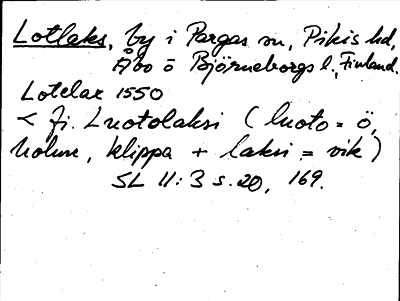 Lotlaks, by i Pargas sn, Pikis hd,
Åbo o Björneborgs l., Finland.
Lotelax 1550
< fi. Luotolaksi (luoto = ö,
holme, klippa + laksi = vik)
SL II:3 s. 20, 169.